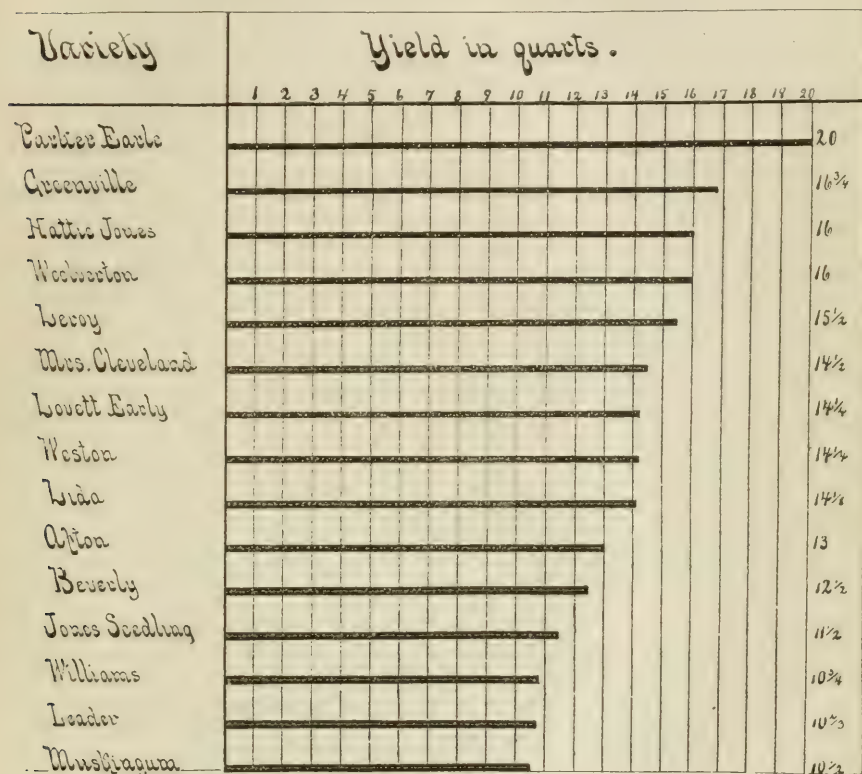 Variety Yield in quarts.
1 2 3 4 5 6 7 8 9 10 11 12 13 14 15 16 17 18 19 20
Parker Earle 20
Greenville 16 3/4
Hattie Jones 16
Woolverton 16
Leroy 15 1/2
Mrs. Cleveland 14 1/2
Lovett Early 14 1/4
Weston 14 1/4
Lida 14 1/8
Afton 13
Beverly 12 1/2
Jones Seedling 11 1/2
Williams 10 3/4
Leader 10 2/3
Muskingum 10 1/2